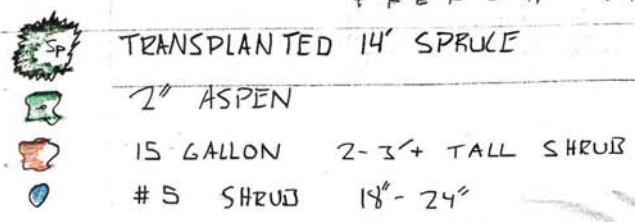 Sp TRANSPLANTED 14' SPRUCE
2" ASPEN
15 GALLON 2-3'+ TALL SHRUB
#5 SHRUB 18"-24"